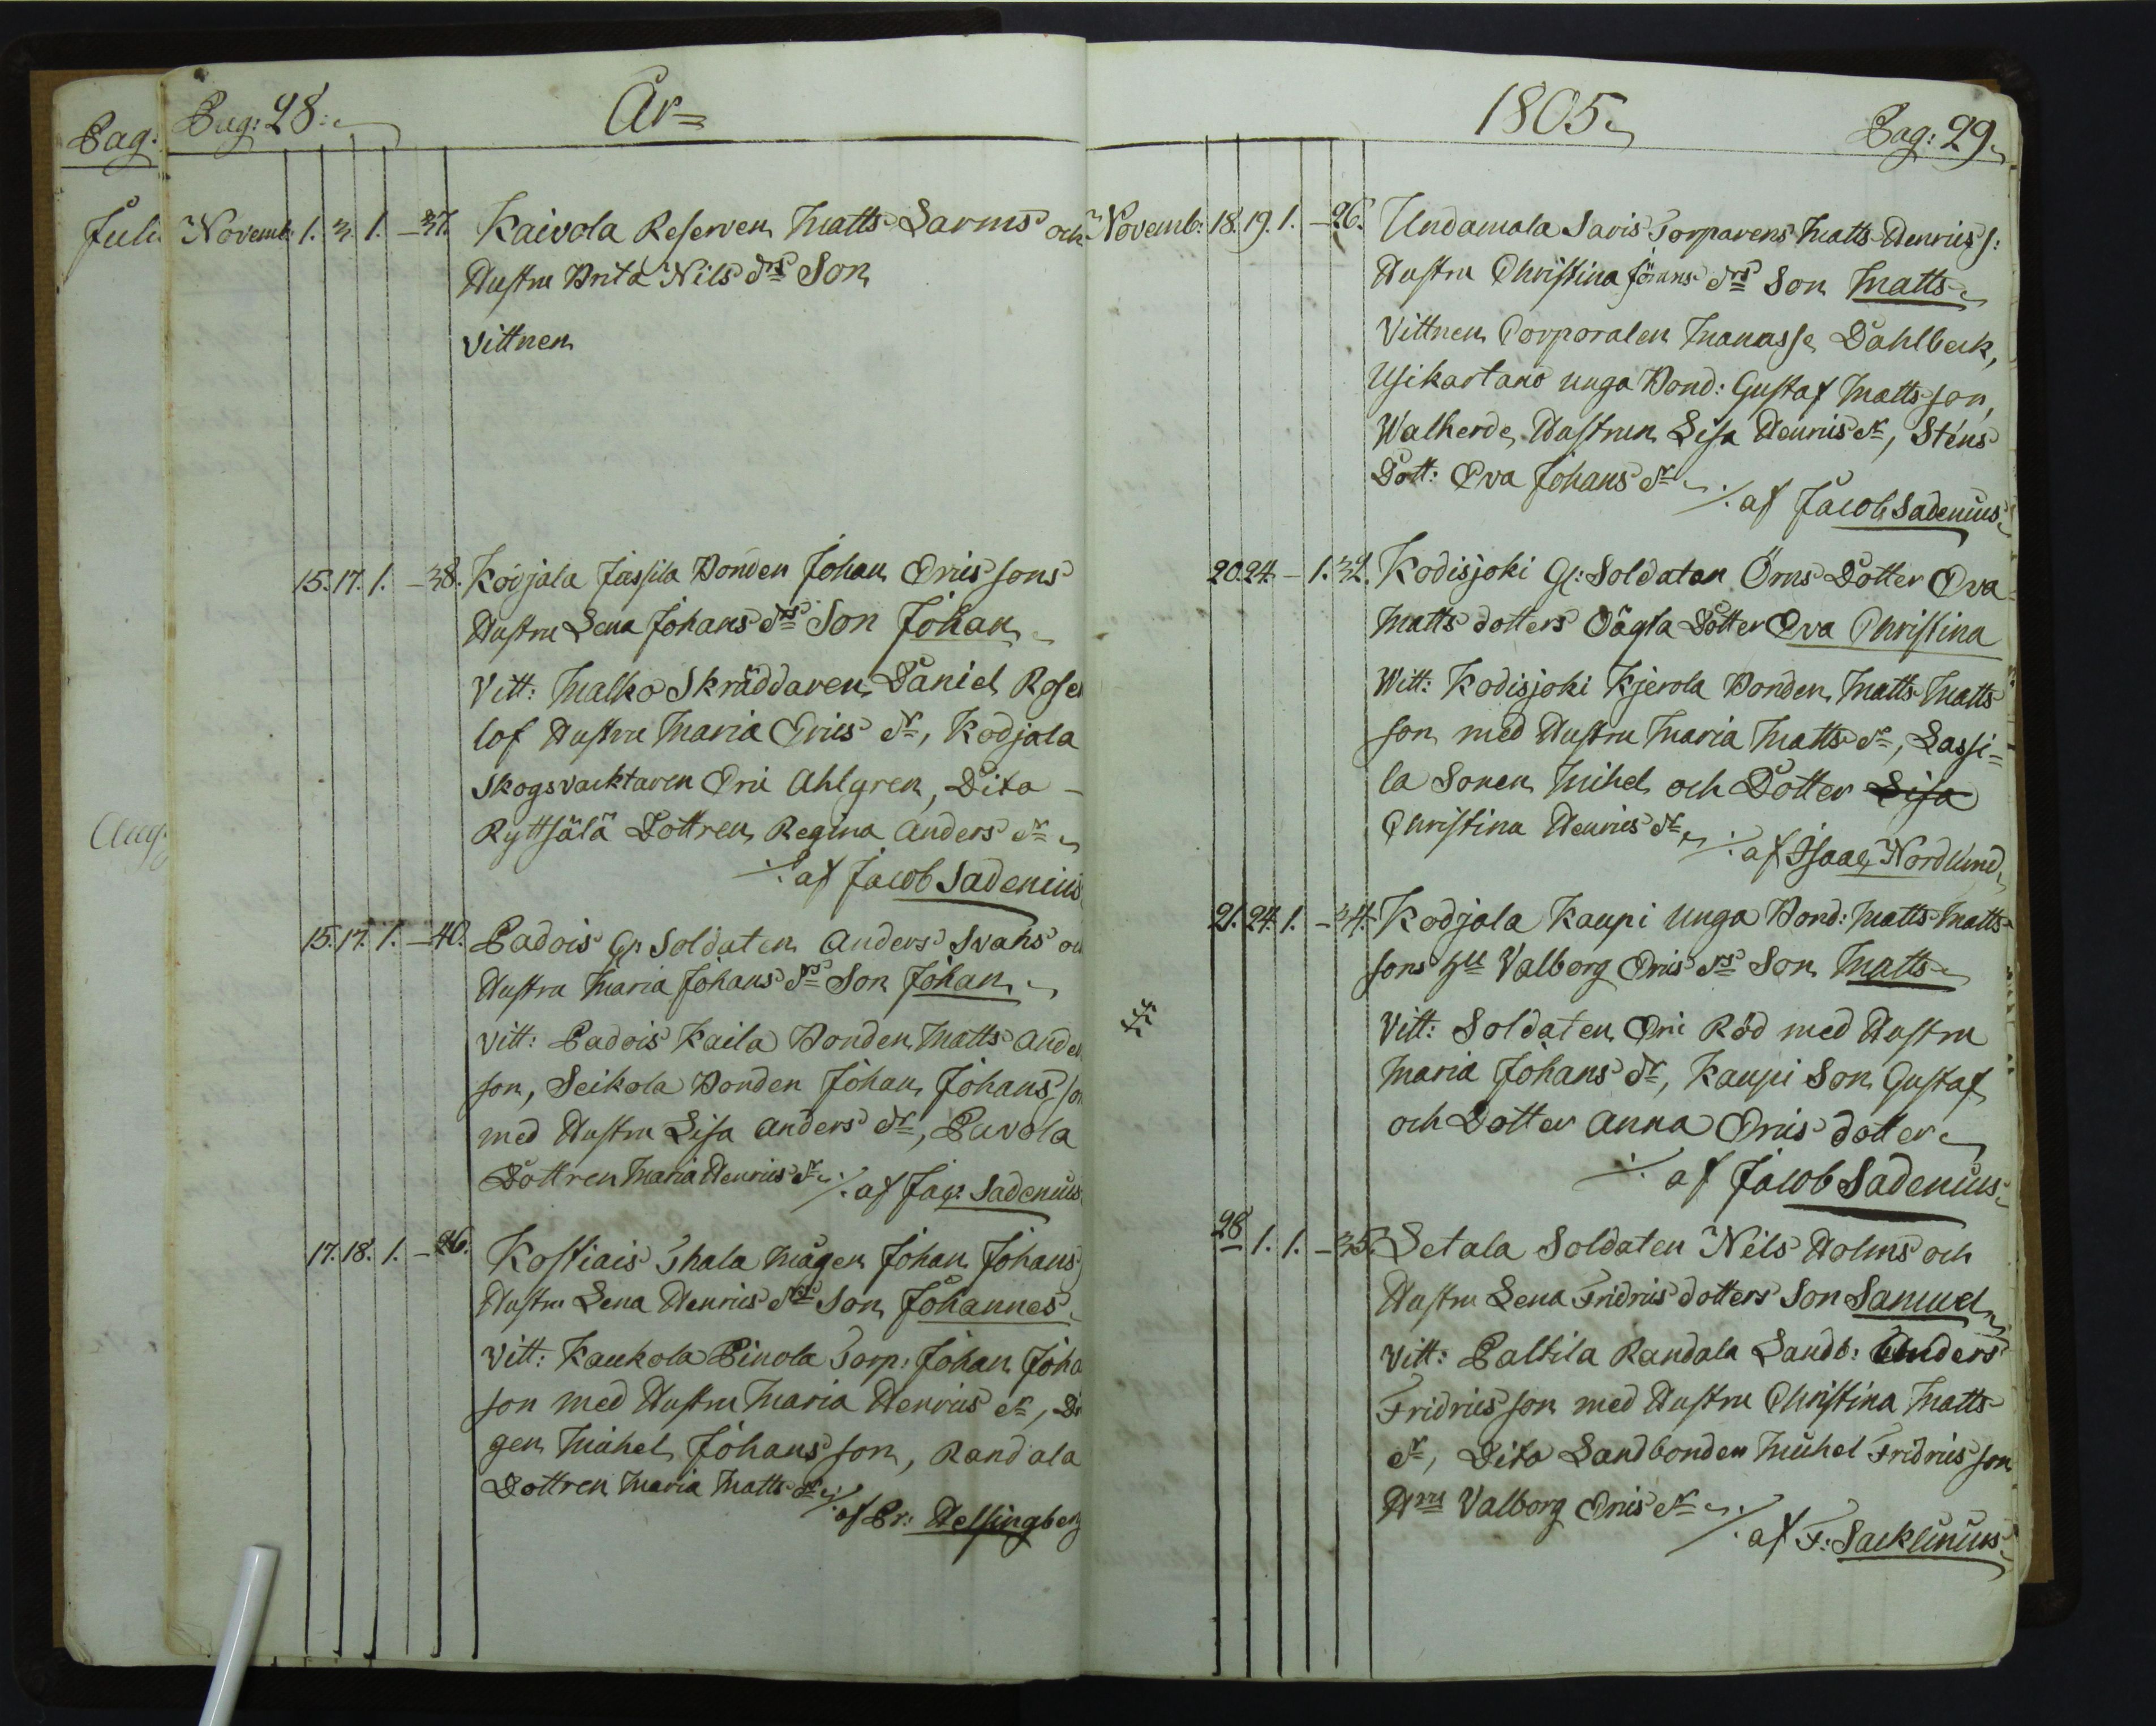 Pag:
Juli
Aug:
Pag: 28.
År=
Novemb: 1. 3. 1. – 37. Kaivola Reserven Matts Larms och
Hustru Brita Nils drs Son
Vittnen
15. 17. 1. – 38. Kodjala Jussila Bonden Johan Erics sons
Hustru Lena Johans drs Son Johan
Vitt: Malko Skräddaren Daniel Rose
lof Hustru Maria Erics dr, Kodjala
Skogsvacktaren Eric Ahlgren, Dito –
Ryttsälä Dottren Regina Anders dr
./. af Jacob Sadenius
15. 17. 1. – 40. Padois Gl Soldaten Anders Svahs oc
Hustru Maria Johans drs Son Johan
Vitt: Padois Kaila Bonden Matts Ander
son, Seikola Bonden Johan Johans so
med Hustru Lisa Anders dr, Puvola
Dottren Maria Henrics dr ./. af Jac: Sadenius
17. 18. 1. – 26. Kostiais Ihala Mågen Johan Johans
Hustru Lena Henrics drs Son Johannes
Vitt: Kaukola Pinola Torp: Johan Joha
son med Hustru Maria Henrics dr, Dr
gen Michel Johans son, Randala
Dottren Maria Matts dr ./. af Pr: Helsingberg
1805
Pag: 29.
Novemb: 18. 19. 1. – 26. Undamala Savis Torparens Matts Henrics s:
Hustru Christina Jörans drs Son Matts
Vittnen Corporalen Manasse Dahlbeck,
Usikartano unga Bond: Gustaf Matts son,
Walkerde Hustrun Lisa Henrics dr, Sténs
Dott: Eva Johans dr ./. af Jacob Sadenius
20. 24. – 1. 32. Kodisjoki Gl: Soldaten Örns Dotter Eva
Matts dotters Oägta Dotter Eva Christina
Witt: Kodisjoki Kjerola Bonden Matts Matts
son med Hustru Maria Matts dr, Lassi=
la Sonen Mihel och Dotter Lisa
Christina Henrics dr ./. af Isaac Nordlund
21. 24. 1. – 34. Kodjala Kaupi unga Bond: Matts Matts
sons hu Valborg Erics drs Son Matts
Vitt: Soldaten Eric Röd med Hustru
Maria Johans dr, Kaupi Son Gustaf
och Dotter Anna Erics dotter
./. af Jacob Sadenius
28 1. 1. – 35. Setala Soldaten Nils Holms och
Hustru Lena Fridrics dotters Son Samuel
Vitt: Paltila Randala Landb: Anders
Fridrics son med Hustru Christina Matts
dr, Dito Landbonden Michel Fridrics son
Hru Valborg Erics dr ./. af F: Sacklinius